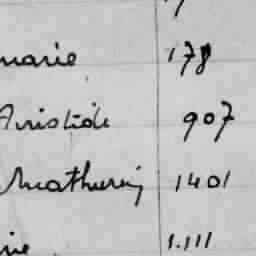 marie 178
Aristide 907
Mathurin 1401
1.111